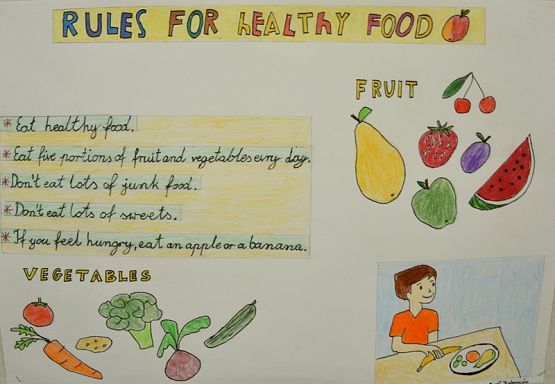 RULES FOR HEALTHY FOOD
FRUIT
* Eat healthy food.
* Eat five portions of fruit and vegetables evry day.
* Don't eat lots of junk food.
* Don't eat lots of sweets.
* If you feel hungry, eat an apple or a banana.
VEGETABLES